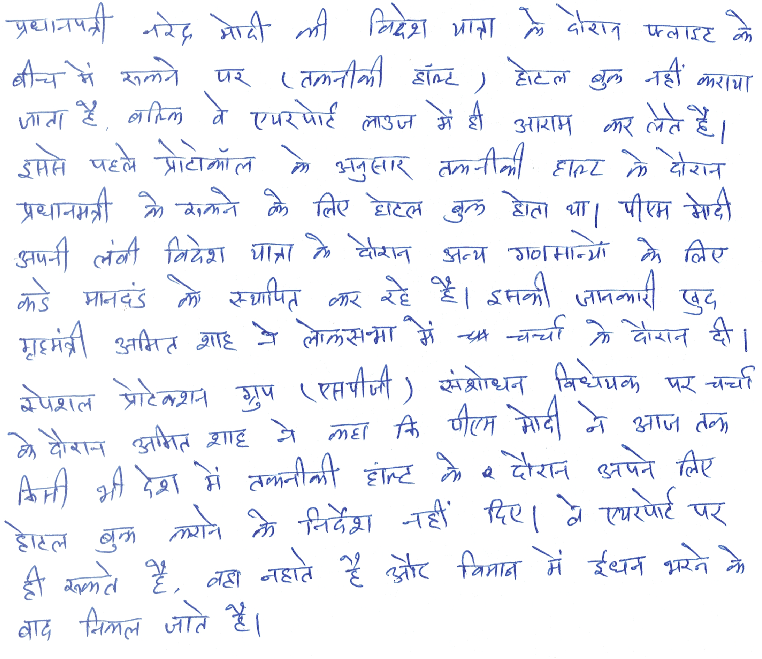 प्रधानमंत्री नरेंद्र मोदी की विदेश यात्रा के दौरान फ्लाइट के
बीच में रूकने पर (तकनीकी हॉल्ट) होटल बुक नहीं कराया
जाता है, बल्कि वे एयरपोर्ट लाउंज में ही आराम कर लेते है।
इससे पहले प्रोटोकॉल के अनुसार तकनीकी हाल्ट के दौरान
प्रधानमंत्री के रूकने के लिए होटल बुक होता था। पीएम मोदी
अपनी लंबी विदेश यात्रा के दौरान अन्य गणमान्यों के लिए
कडे मानदंड को स्थापित कर रहे है। इसकी जानकारी खुद
गृहमंत्री अमित शाह ने लोकसभा में चर्चा के दौरान दी।
स्पेशल प्रोटेक्शन ग्रुप (एसपीजी) संशोधन विधेयक पर चर्चा
के दौरान अमित शाह ने कहा कि पीएम मोदी ने आज तक
किसी भी देश में तकनीकी हॉल्ट के दौरान अपने लिए
होटल बुक कराने के निर्देश नहीं दिए। वे एयरपोर्ट पर
ही रूकते है, वहा नहाते है और विमान में ईधन भरने के
बाद निकल जाते है।